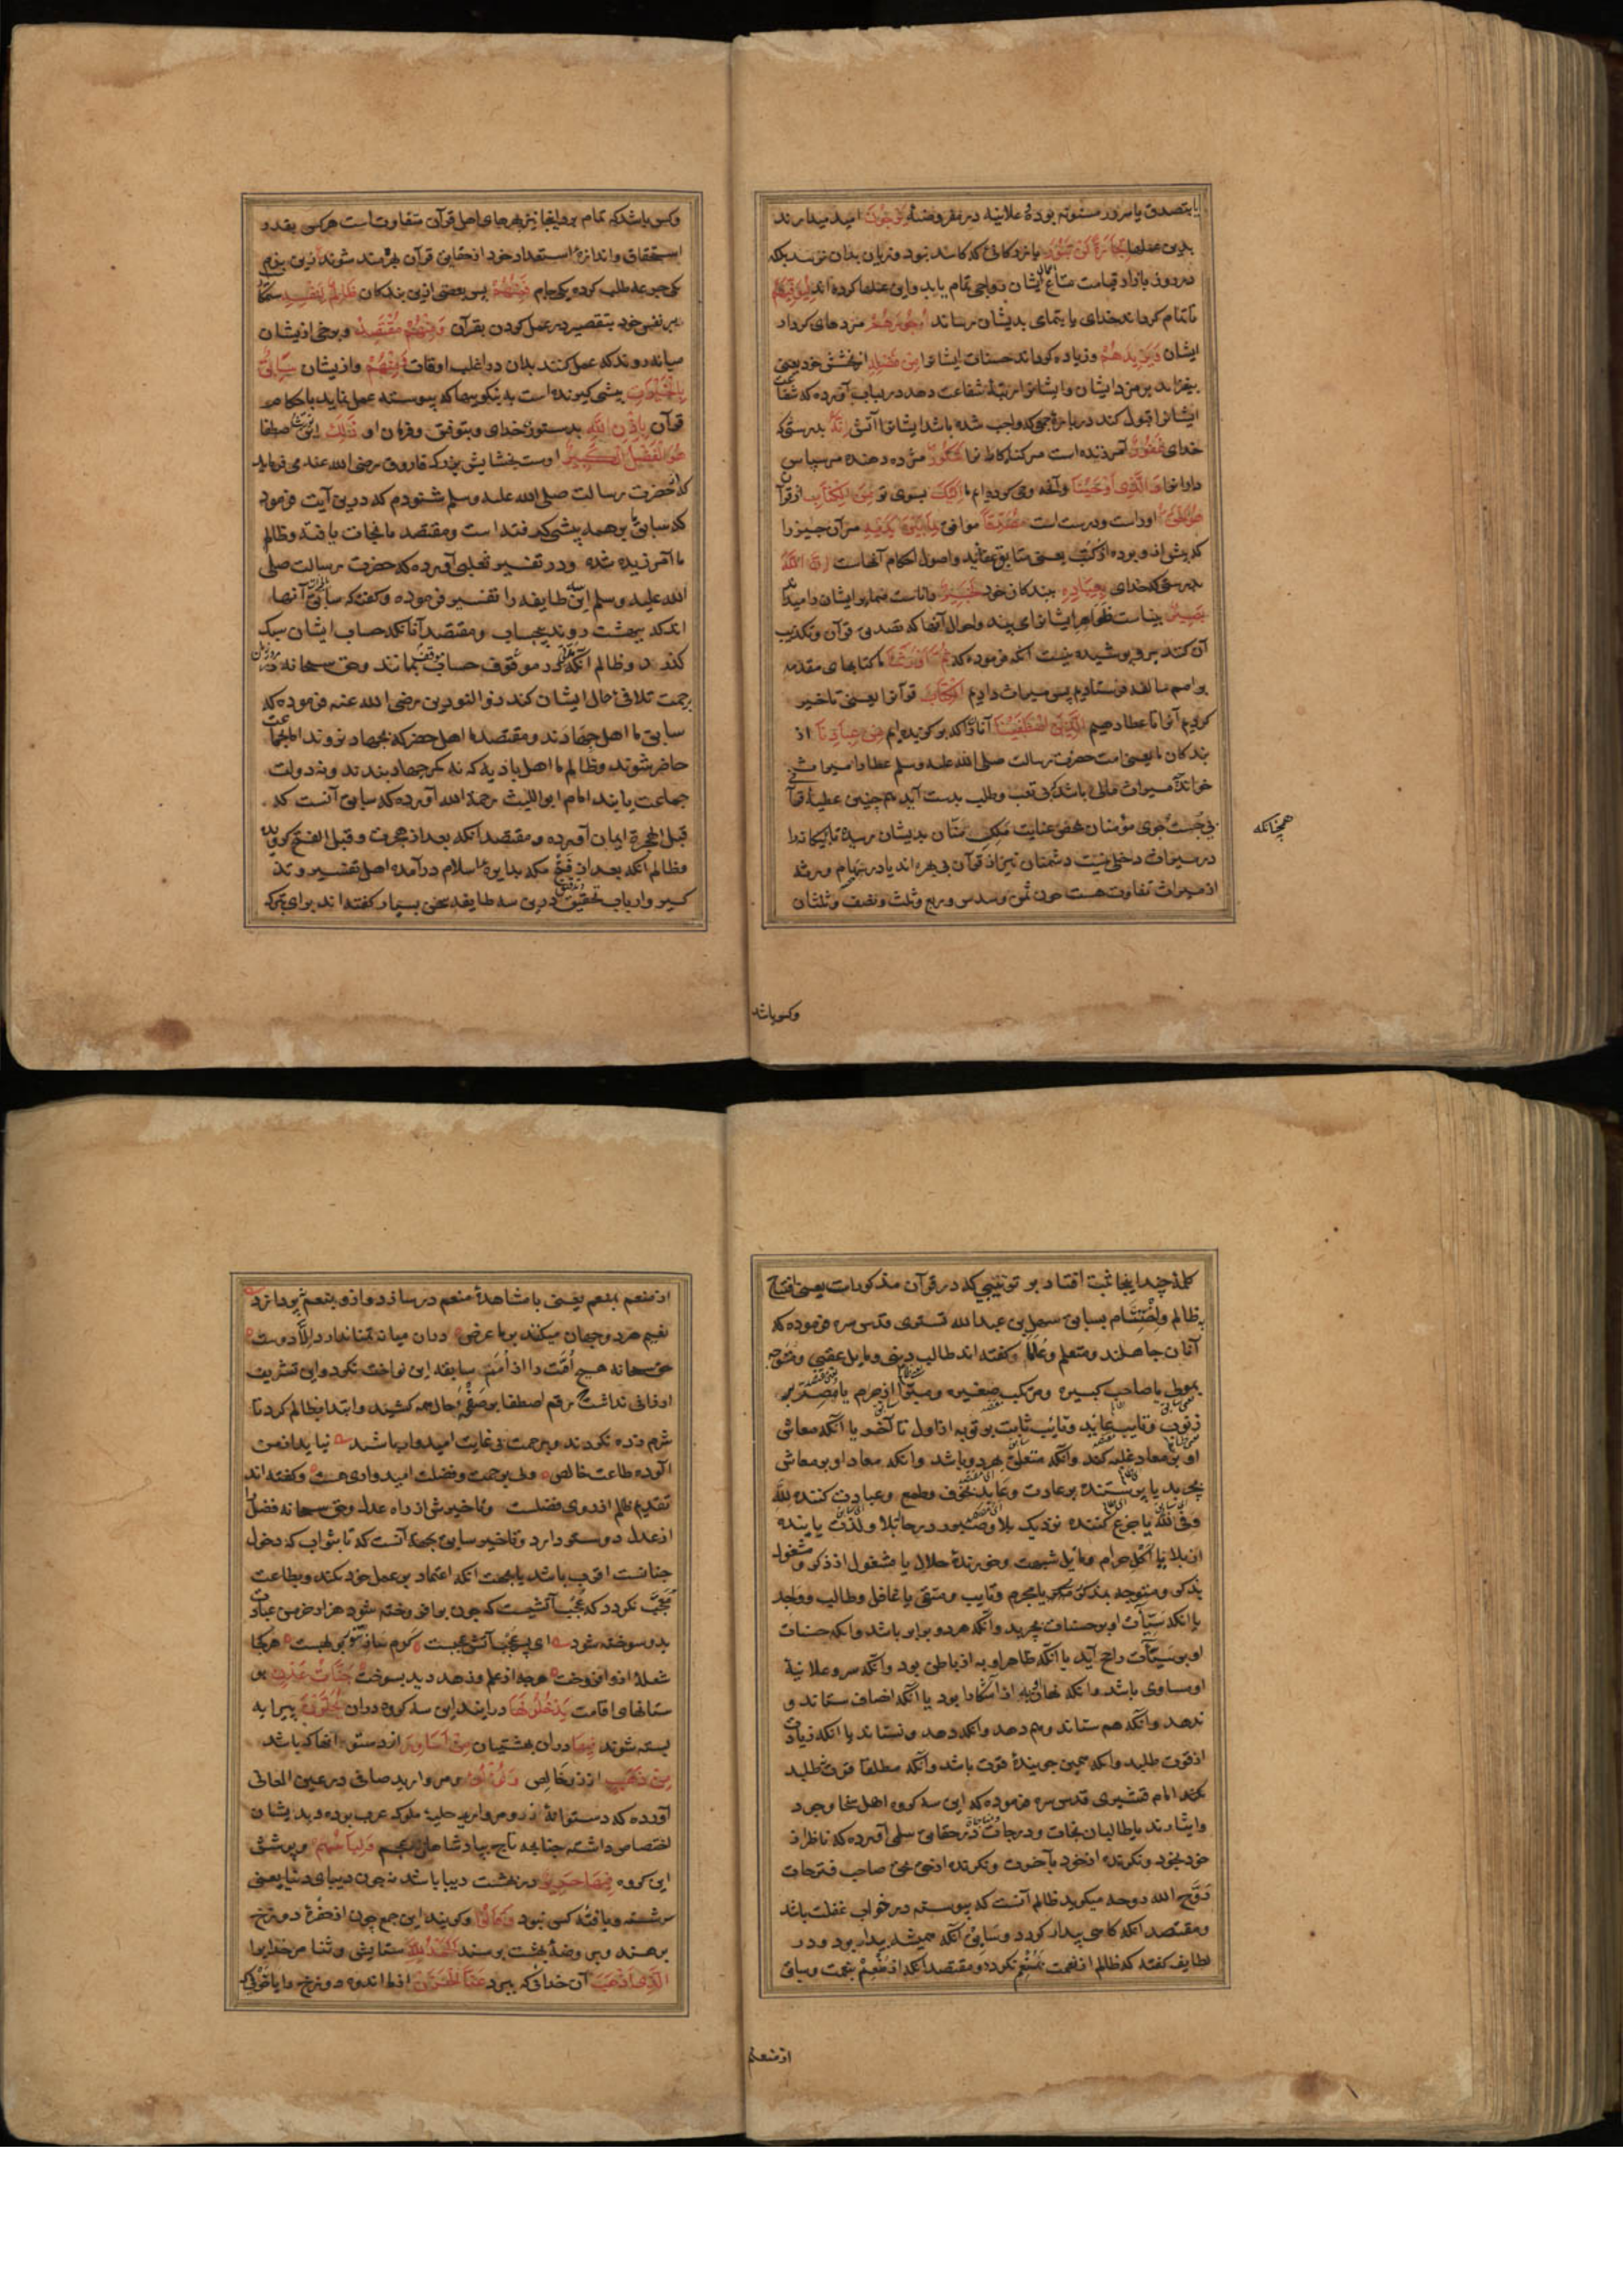 یا بتصدق یا مرور مسنونه بوده علانیة در مفروضه یَرْجُونَ امید میدارند
بدین عملها تِجَارَةً لَنْ تَبُورَ بازرکانی که کاسد نبود و زیان بدان نرسد بلکه
در روز بازار قیامت متاع اعمال ایشان رواجی تمام یابد و این عملها کرده اند لِیُوَفِّیَهُمْ
تا تمام کرداند خدای یا بتمامی بدیشان رساند أُجُورَهُمْ مزدهای کردار
ایشان وَیَزِیدَهُمْ و زیاده کرداند حسنات ایشانرا مِنْ فَضْلِهِ از بخشش خود یعنی
بیفزاید بر مزد ایشان و ایشانرا مرتبهٔ شفاعت دهد در لباب آورده که شفاعت
ایشانرا قبول کند در بارهٔ جمعی که واجب شده باشد ایشانرا آتش إِنَّهُ بدرستی که
خدای غَفُورٌ آمرزنده است مر کناهکاطرا شَکُورٌ مزد دهنده مر سپاس
دارانرا وَالَّذِی أَوْحَیْنَا و آنچه وحی کرده ایم ما إِلَیْکَ بسوی تو مِنَ الْکِتَابِ از قرآن
هُوَ الْحَقُّ او راست و درست است مُصَدِّقًا موافق لِمَا بَیْنَ یَدَیْهِ مر آن چیز را
که پیش از و بوده از کتب یعنی مطابق عقاید و اصول احکام آنهاست إِنَّ اللَّهَ
بدرستی که خدای بِعِبَادِهِ ببندکان خود لَخَبِیرٌ داناست ضمایر ایشان را میداند
بَصِیرٌ بیناست ظواهر ایشانرا می بیند و احوال آنها که تصدیق قرآن و تکذیب
آن کنند برو پوشیده نیست آنکه فرموده که ثُمَّ أَوْرَثْنَا ما کتابهای مقدمه
بر امم سالفه فرستادیم پس میراث دادیم الْکِتَابَ قرآنرا یعنی تاخیر
کردیم آنرا تا عطا دهیم الَّذِینَ اصْطَفَیْنَا آنانرا که برکزیده ایم مِنْ عِبَادِنَا از
بندکان ما یعنی امت حضرت رسالت صلی الله علیه و سلم عطا را میراث
خواند که میراث مالی باشد که بی تعب و طلب بدست آید همچنین عطیهٔ قرآن
بی جست جوی مؤمنان بمحض عنایت ملک منان بدیشان رسیده تا بیکانرا
همچنانکه
در میراث دخلی نیست دشمنان نیز از قرآن بی بهره اند یا در سهام ورثه
از میراث تفاوت هست چون ثمن و سدس و ربع و ثلث و نصف و ثلثان
وکس باشد
و کس باشد که تمام برد اینجا نیز بهرهای اهل قرآن متفاوت است هر کس بقدر
استحقاق و اندازهٔ استعداد خود از حقایق قرآن بهرمند شوند زین بزم
یکی جرعه طلب کرده یکی جام فَمِنْهُمْ پس بعضی ازین بندکان ظَالِمٌ لِنَفْسِهِ ستمکار
بر نفس خود بتقصیر در عمل کردن بقرآن وَمِنْهُمْ مُقْتَصِدٌ و برخی از یشان
میانه روند که عمل کنند بدان در اغلب اوقات وَمِنْهُمْ و از یشان سَابِقٌ
بِالْخَیْرَاتِ پیشی کیرنده است به نیکوییها که پیوسته عمل نماید باحکام
قرآن بِإِذْنِ اللَّهِ بدستوری خدای و بتوفیق و فرمان او ذَلِکَ این اصطفا
هُوَ الْفَضْلُ الْکَبِیرُ اوست بخشایش بزرک فاروق رضی الله عنه می فرماید
که از حضرت رسالت صلی الله علیه و سلم شنودم که درین آیت فرمود
که سابق ما بر همه پیشی کیرنده است و مقتصد ما نجات یافته و ظالم
ما آمرزیده شده و در تفسیر ثعلبی آورده که حضرت رسالت صلی
الله علیه و سلم این طایفه را تفسیر فرموده و کفته که سابق آنها
اند که ببهشت روند بیحساب و مقتصد آنانکه حساب ایشان سبک
کنند و ظالم آنکه در موقوف حساب بمانند و حق سبحانه
برحمت تلافی حال ایشان کند ذو النورین رضی الله عنه فرموده که
سابق ما اهل جهادند و مقتصد ما اهل حضر که بجهاد نروند اما بجماعت
حاضر شوند و ظالم ما اهل بادیه که نه بکر جهاد بندند و نه دولت
جماعت یابند امام ابو اللیث رحمة الله آورده که سابق آنست که
قبل الهجرة ایمان آورده و مقتصد آنکه بعد از هجرت و قبل الفتح کرویده
و ظالم آنکه بعد از فتح مکه بدایرهٔ اسلام در آمده اهل تفسیر و تذ
کیر و ارباب تحقیق درین سه طایفه سخن بسیار کفته اند برای تبرک
کلمهٔ چند اینجا ثبت افتاد بر ترتیبی که در قرآن مذکورات یعنی افتتاح
بظالم و اختتام بسابق سهل بن عبد الله تستری قدس سره فرموده که
آنان جاهلند و متعلم و عالم و کفته اند طالب دنیی و مایل عقبی و متوجه
بمولی یا صاحب کبیره و مرتکب صغیره و مبرا از جرم یا مصر بر
ذنوب و تایب و تائب ثابت بر توبه از اول تا آخر یا آنکه معاش
او بر معاد غلبه کند و آنکه متعلق بهر دو باشد و آنکه معاد او بر معاش
بچربد یا پرستنده بر عادت و عابد بخوف و طمع و عبادت کننده لله
و فی الله یا جزع کننده نزدیک بلا و صبور در حال بلا و لذت یابنده
از بلا یا آکل حرام و مایل شبهت و خورندهٔ حلال یا مشغول از ذکر و مشغول
بذکر و متوجه بمذکور یا مجرم و تایب و متقی یا غافل و طالب و واجد
یا آنکه سیئات او بر حسنات بچربد و آنکه هر دو برابر باشد و آنکه حسنات
او بر سیئات راجح آید یا آنکه ظاهر او به از باطن بود و آنکه سر و علانیهٔ
او مساوی باشد و آنکه نهان به از آشکارا بود یا آنکه انصاف ستاند و
ندهد و آنکه هم ستاند و هم دهد و آنکه دهد و نستاند یا آنکه زیادت
از قوت طلبد و آنکه همین جویندهٔ قوت باشد و آنکه مطلقا قوت طلب
نکند امام قشیری قدس سره فرموده که این سه کروه اهل سخا و جود
و ایثارند یا طالبان نجات و درجات در حقایق سلمی آورده که ناظر از
خود بخود و نکرنده از خود بآخرت و نکرنده از حق بحق صاحب فتوحات
روح الله روحه میکوید ظالم آنست که پیوسته در خواب غفلت باشد
و مقتصد آنکه کاهی بیدار کردد و سابق آنکه همیشه بیدار بود و در
لطایف کفته که ظالم از نعمت بمنعم نکردد و مقتصد آنکه از منعم بنعمت و سابق
از منعم
از منعم بمنعم یعنی با مشاهدهٔ منعم در سازد و از و بنعم نپردازد
نعیم هر دو جهان میکنند بر ما عرض دران میانه تمنا ندارد الا دوست
حق سبحانه هیچ امت را از امم سابقه این نواخت نکرد و این تشریف
ارزانی نداشت رقم اصطفا بر صفحهٔ حال همه کشیند و ابتدا بظالم کرد تا
شرم زده نکردند و برحمت بی غایت امیدوار باشند نیاید از من
آلوده طاعت خالص ولی برحمت و فضلت امیدواری هست و کفته اند
تقدیم ظالم از روی فضلست و تاخیرش از راه عدل و حق سبحانه فضل
از عدل دوستر دارد و تاخیر سابق بجهة آنست که تا بثواب که دخول
جنانست اقرب باشد یا بجهت آنکه اعتماد بر عمل خود نکند و بطاعت
معجب نکردد که عجب آتشیست که چون بر افروخته شود هزار خرمن عبادت
بدو سوخته شود ای پسر عجب آتش عجبت کرم ساز تنور بو لهبست هر کجا
شعلهٔ ازو افروخت هرچه از علم و زهد دید بسوخت جَنَّاتُ عَدْنٍ بو
ستانهای اقامت یَدْخُلُونَهَا در آیند این سه کروه دران یُحَلَّوْنَ پیرایه
بسته شوند فِیهَا دران بهشتیان مِنْ أَسَاوِرَ از دستوانها که باشد
مِنْ ذَهَبٍ از زر خالص وَلُؤْلُؤًا و مروارید صافی در عین المعانی
آورده که دستوانهٔ زر و مروارید حلیهٔ ملوک عرب بوده و بدیشان
اختصاص داشته چنانچه تاج بپادشاهان عجم وَلِبَاسُهُمْ و پوشش
این کروه فِیهَا حَرِیرٌ در بهشت دیبا باشد نه چون دیبای دنیا یعنی
سرشته و بافتهٔ کسی نبود وَقَالُوا و کویند این جمع چون از حفرهٔ دوزخ
برهند و بروضهٔ بهشت برسند الْحَمْدُ لِلَّهِ ستایش و ثنا مر خدایرا
الَّذِی أَذْهَبَ آن خدای که ببرد عَنَّا الْحَزَنَ از ما اندوه دوزخ و یا خوف